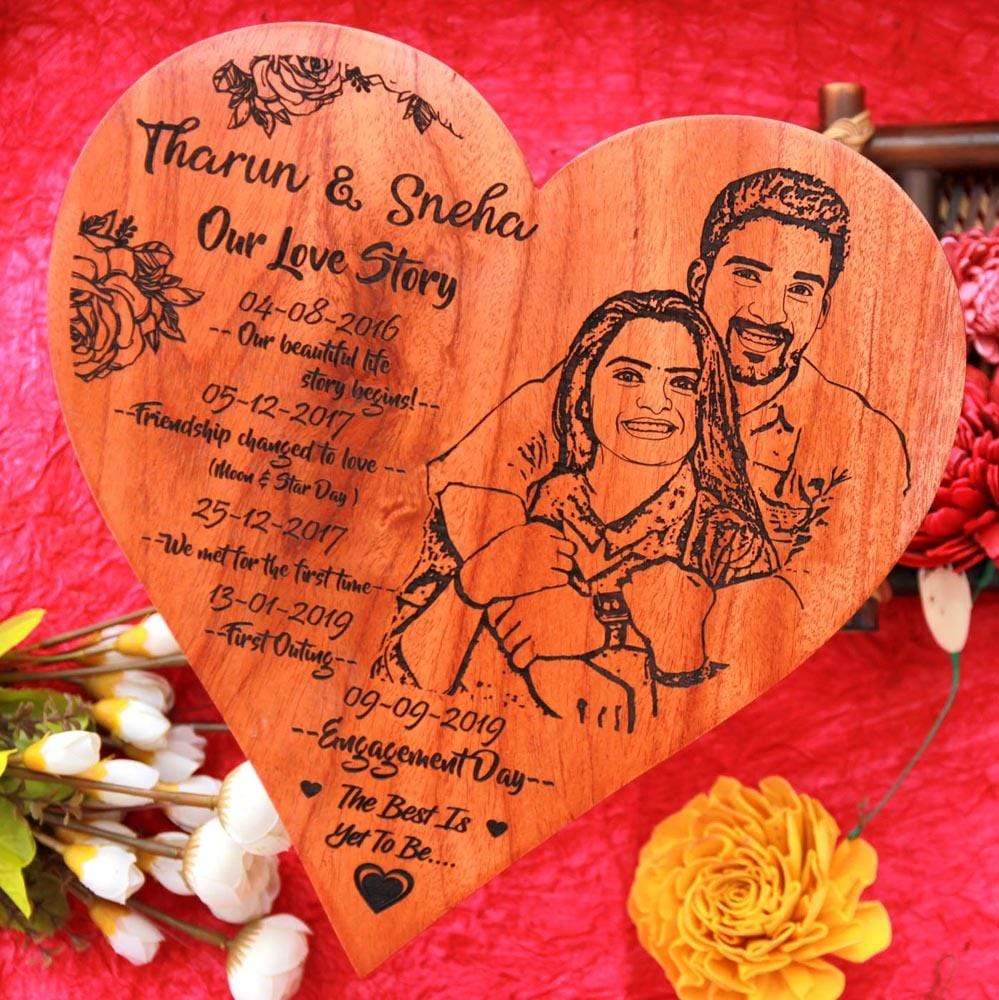 Tharun & Sneha
Our Love Story
04-08-2016
-- Our beautiful life
story begins!--
05-12-2017
--Friendship changed to love --
(Moon & Star Day )
25-12-2017
--We met for the first time--
13-01-2019
--First Outing--
09-09-2019
--Engagement Day--
The Best Is
Yet To Be....